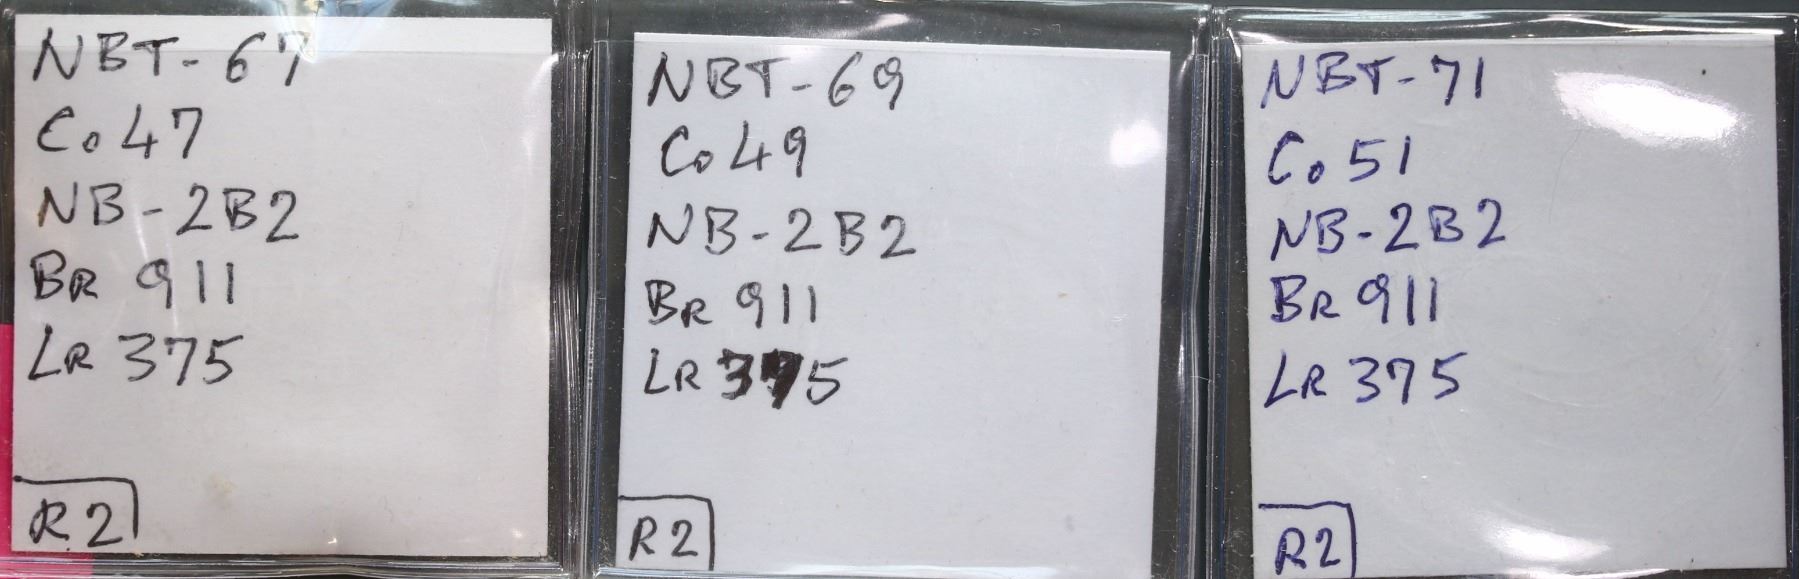 NBT-67
Co 47
NB-2B2
BR 911
LR 375
R2
NBT-69
Co 49
NB-2B2
BR 911
LR 375
R2
NBT-71
Co 51
NB-2B2
BR 911
LR 375
R2